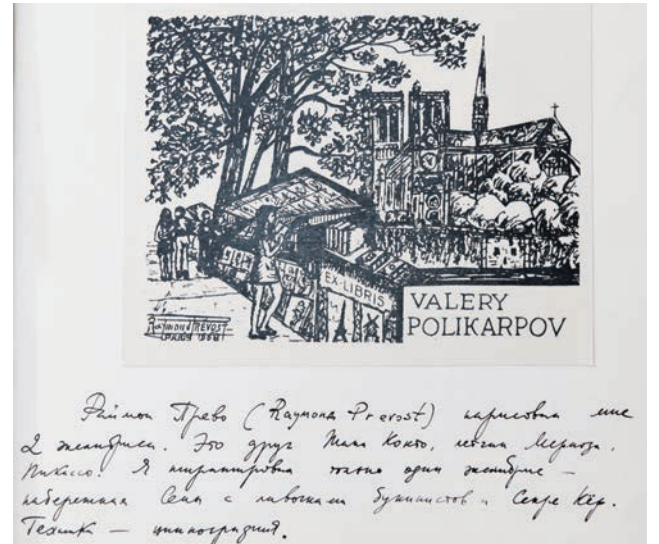 EX-LIBRIS
VALERY
POLIKARPOV
RAYMOND PREVOST
Раймон Прево (Raymond Prevost) нарисовал мне
2 экслибриса. Это друг Жана Кокто,
Пикассо. Я только один экслибрис –
набережная Сены с лавочками букинистов и Секре Кёр.
Техника – цинкография.